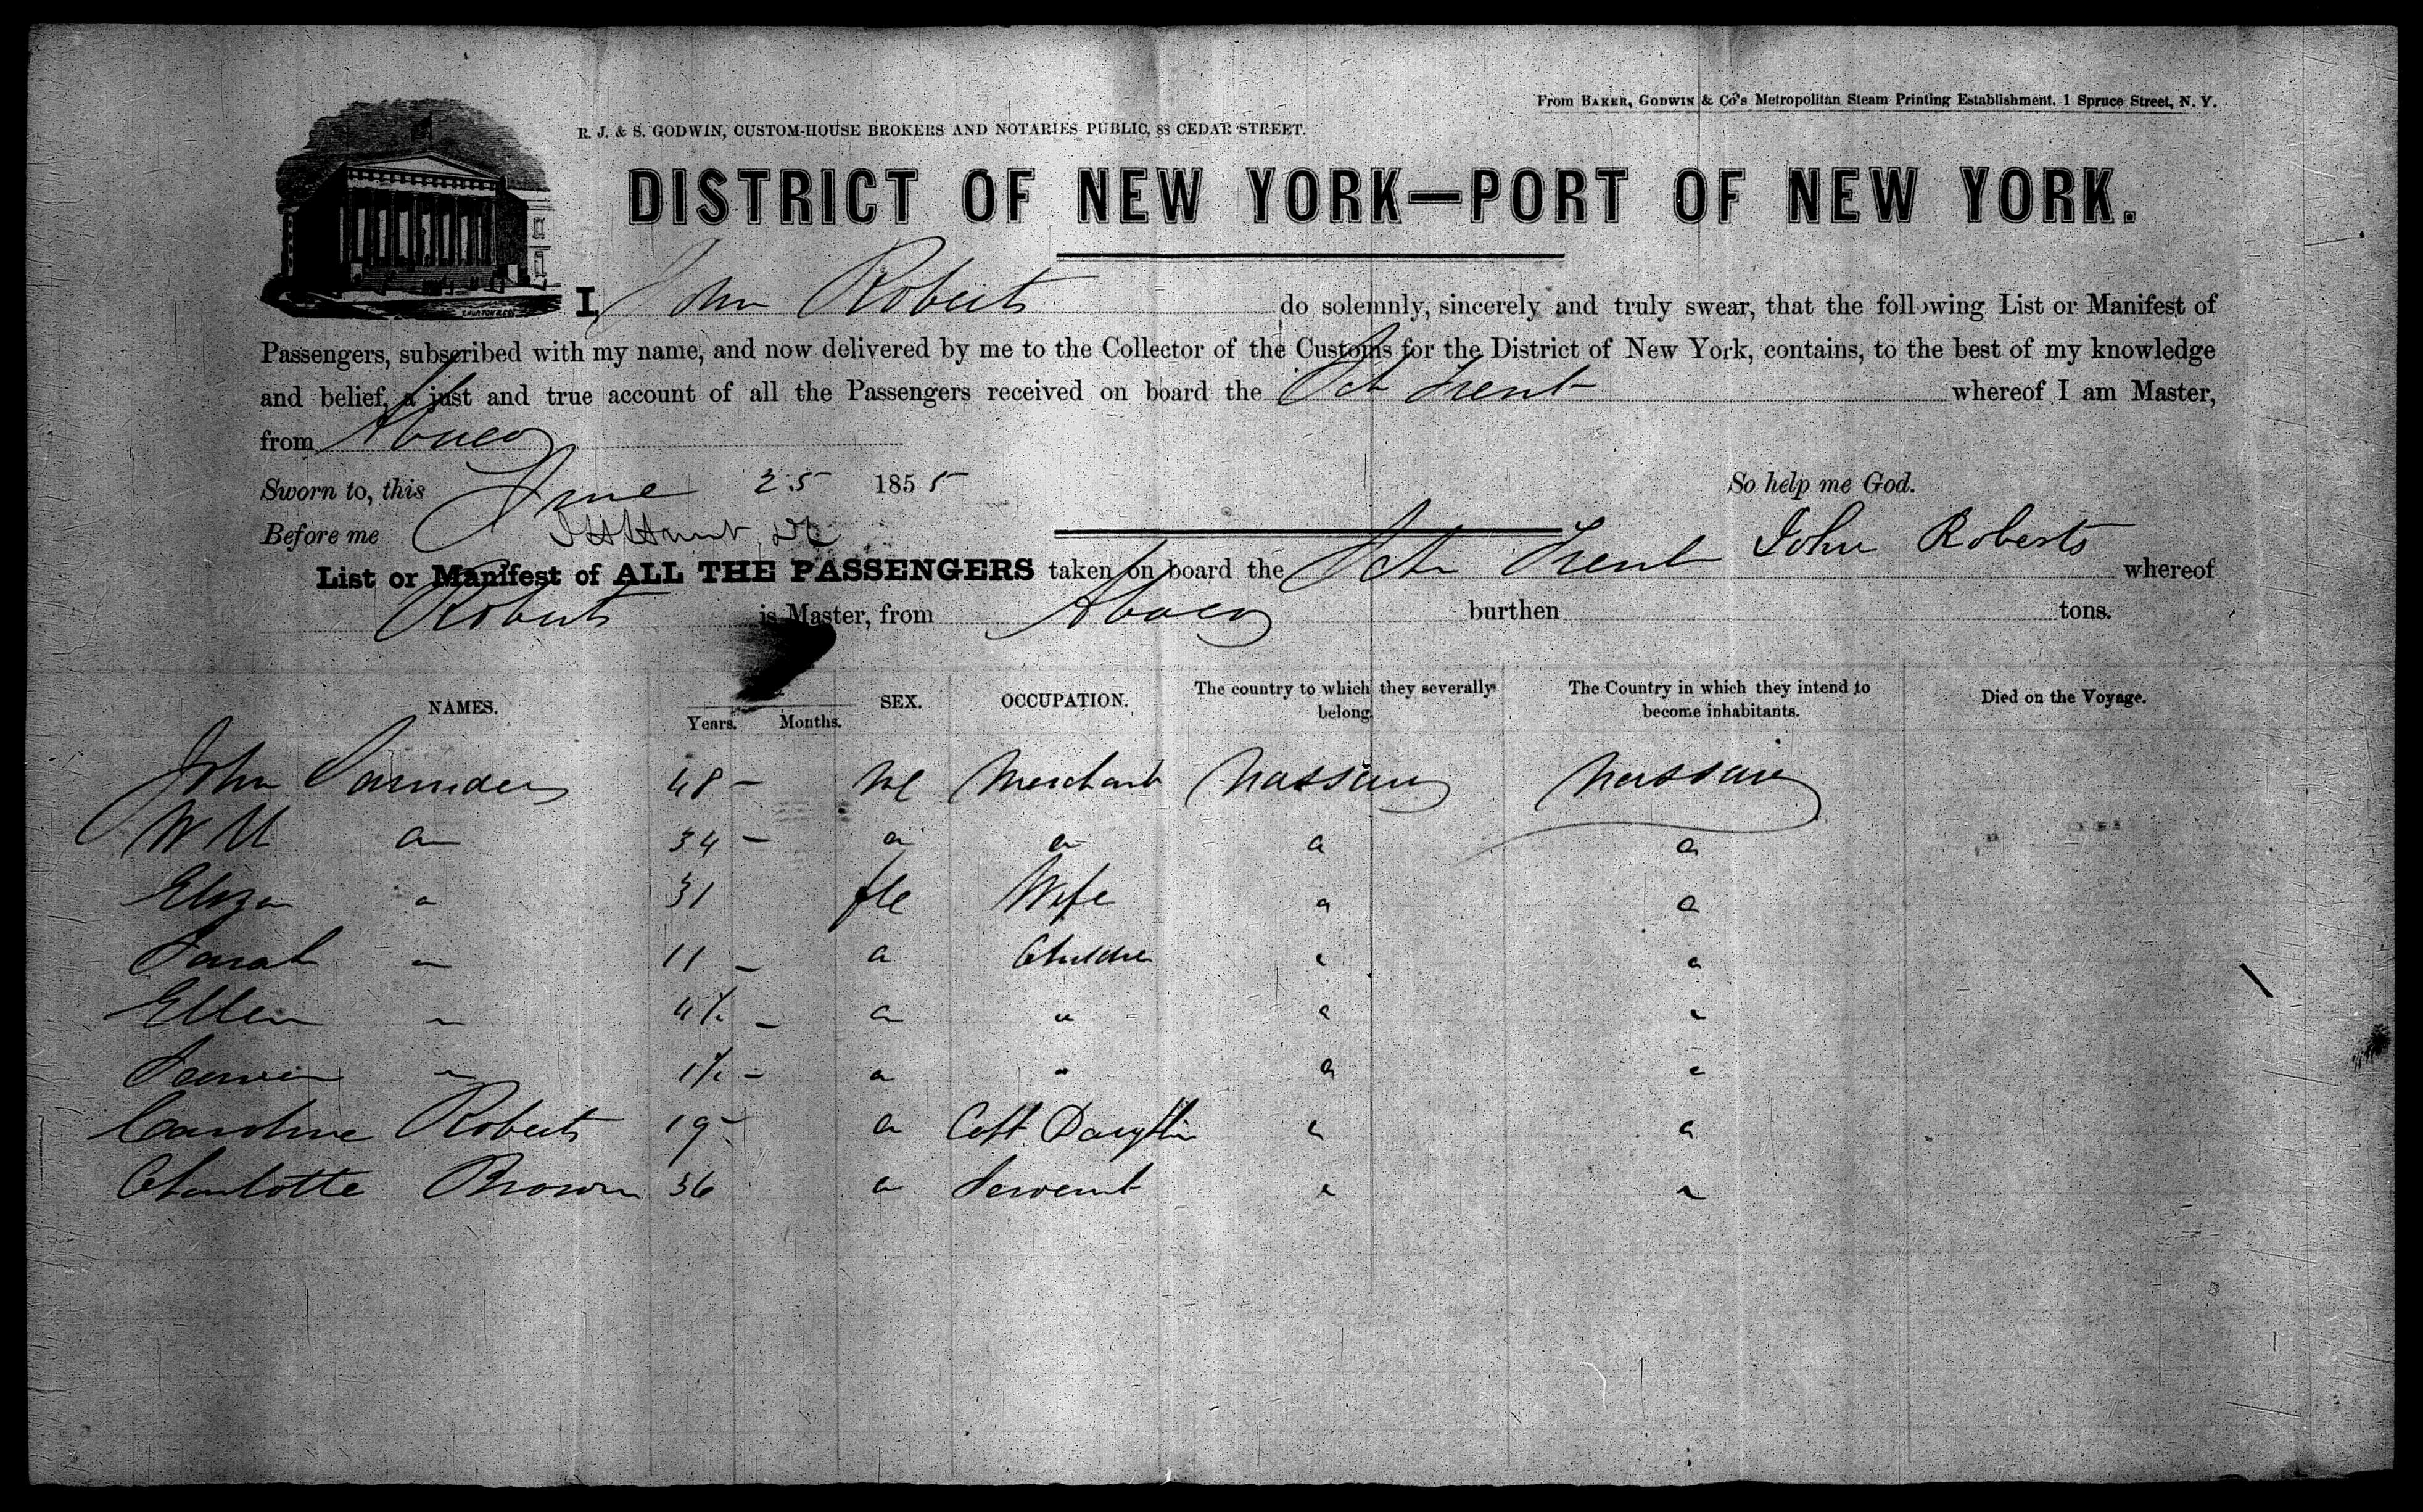 From BAKER, GODWIN & Co's Metropolitan Steam Printing Establishment, 1 Spruce Street, N. Y.
R. J. & S. GODWIN, CUSTOM-HOUSE BROKERS AND NOTARIES PUBLIC, 88 CEDAR STREET.
DISTRICT OF NEW YORK—PORT OF NEW YORK.
I, John Roberts do solemnly, sincerely and truly swear, that the following List or Manifest of
Passengers, subscribed with my name, and now delivered by me to the Collector of the Customs for the District of New York, contains, to the best of my knowledge
and belief, a just and true account of all the Passengers received on board the Sch Trent whereof I am Master,
from Abaco
Sworn to, this June 25 1855 So help me God.
Before me
John Roberts
List or Manifest of ALL THE PASSENGERS taken on board the Sch Trent whereof
Roberts is Master, from Abaco burthen tons.
NAMES. Years. Months. SEX. OCCUPATION. The country to which they severally belong. The Country in which they intend to become inhabitants. Died on the Voyage.
John Saunders 48 - Me Merchant Nassau Nassau
W M " 34 - " " " "
Eliza " 31 fle Wife " "
Sarah " 11 - " Children " "
Ellen " 4½ - " " " "
" 1½ - " " " "
Caroline Roberts 19 - " Capt Daughter " "
Charlotte Brown 36 " Servent " "